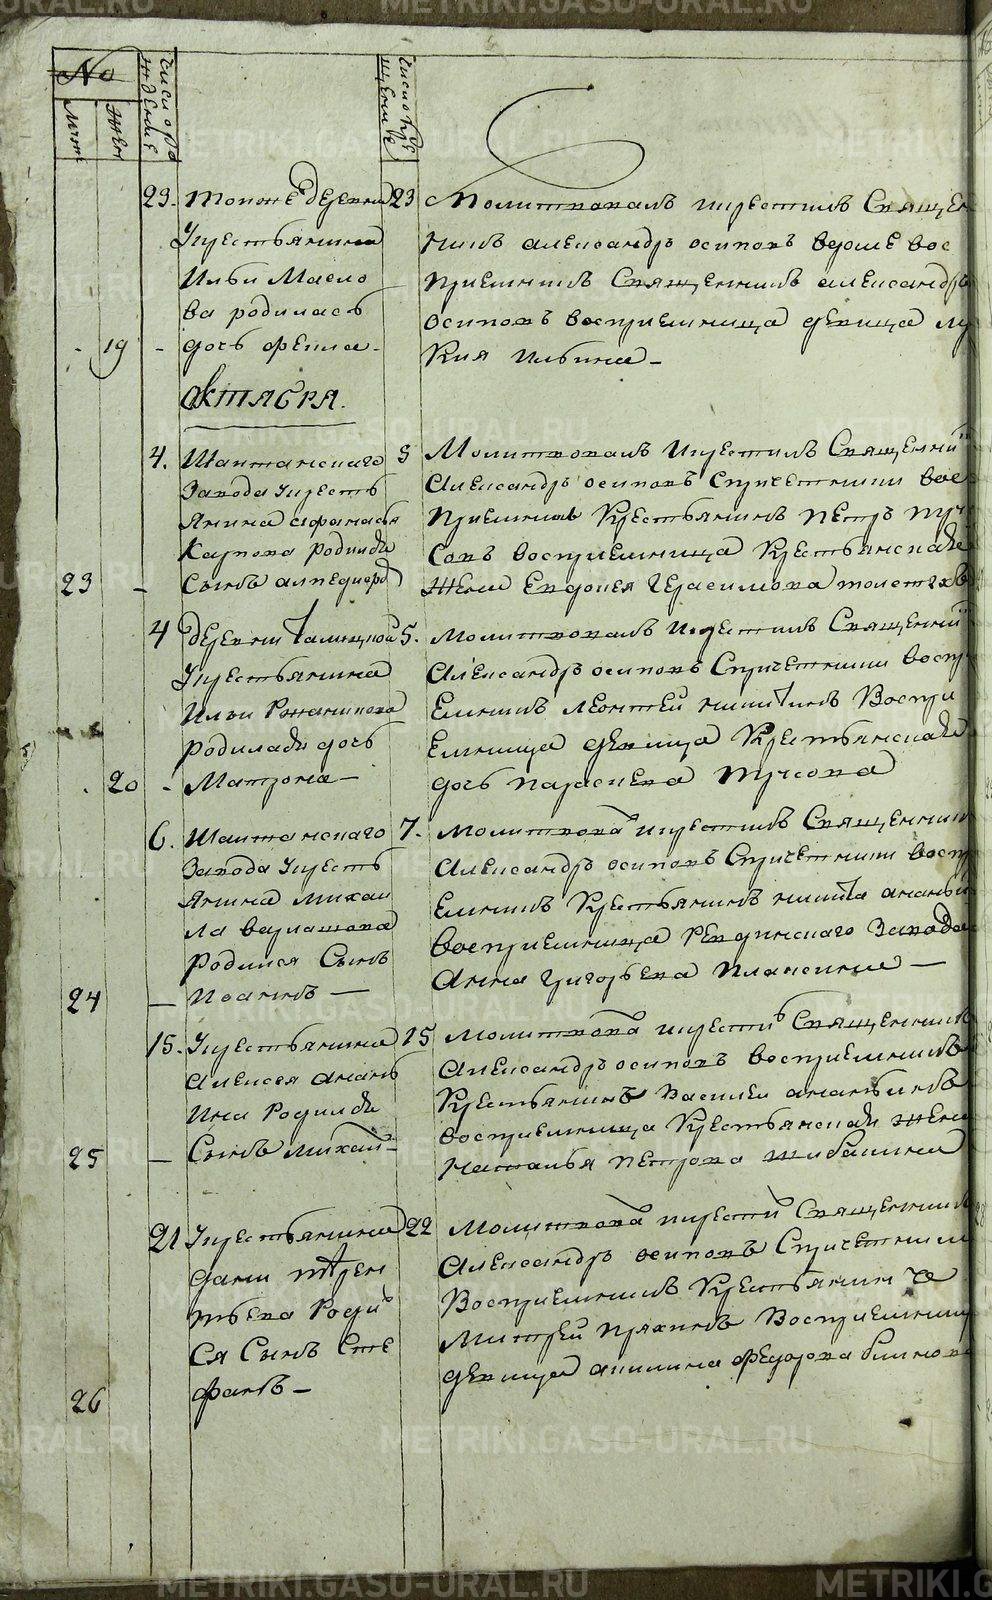 METRIKI.GASO-URAL.RU
№
Число рождение
Число крещение
муж
жен
23. тоюже деревни
крестьянина
Ильи Масло
ва родилась
19 - дочь Фекла -
23 Молитвовалъ и крестилъ Священ
никъ александръ осиповъ вдоме вос
приемникъ Священникъ александръ
осиповъ восприемница девица лу
кия ильина -
октября.
4. Шайтанскаго
завода кресть
янина афонасья
Карпова родился
23 - сынъ алпедифоръ
5 Молитвовалъ и крестилъ Священни
Александръ осиповъ Спричетники вос
приемникъ Крестьянинъ петръ
восприемница Крестьянская
жена Евдокея Герасимова толстухъ
4 деревни талицкой
крестьянина
Ильи
родилась дочь
20 - Матрона -
5. молитвовалъ и крестилъ Священни
Александръ осиповъ Спричетники воспр
емникъ леонтей никитинъ Воспри
емница девица Крестьянская
дочь параскева
6. Шайтанскаго
завода кресть
янина михаи
ла варлашова
родился Сынъ
24 - Иоаннъ -
7. молитвова и крестилъ Священник
Александръ осиповъ Спричетники воспр
емникъ Крестьянинъ никита ананьи
восприемница Ревдинскаго завода
Анна григорьева -
15. крестьянина
алексея анань
ина родился
25 - Сынъ михаи -
15 молитвова и крести Священникъ
Александръ осиповъ восприемникъ
Крестьянинъ василеи ананьинъ
восприемница Крестьянская жена
наталья петрова шибакина
21 крестьянина
терен
тьева роди
ся Сынъ Сте
26 фанъ -
22 Молитвова и крести Священникъ
Александръ осиповъ Спричетники
Восприемникъ Крестьянин
Митрей пряхинъ Восприемниц
девица акилина федорова